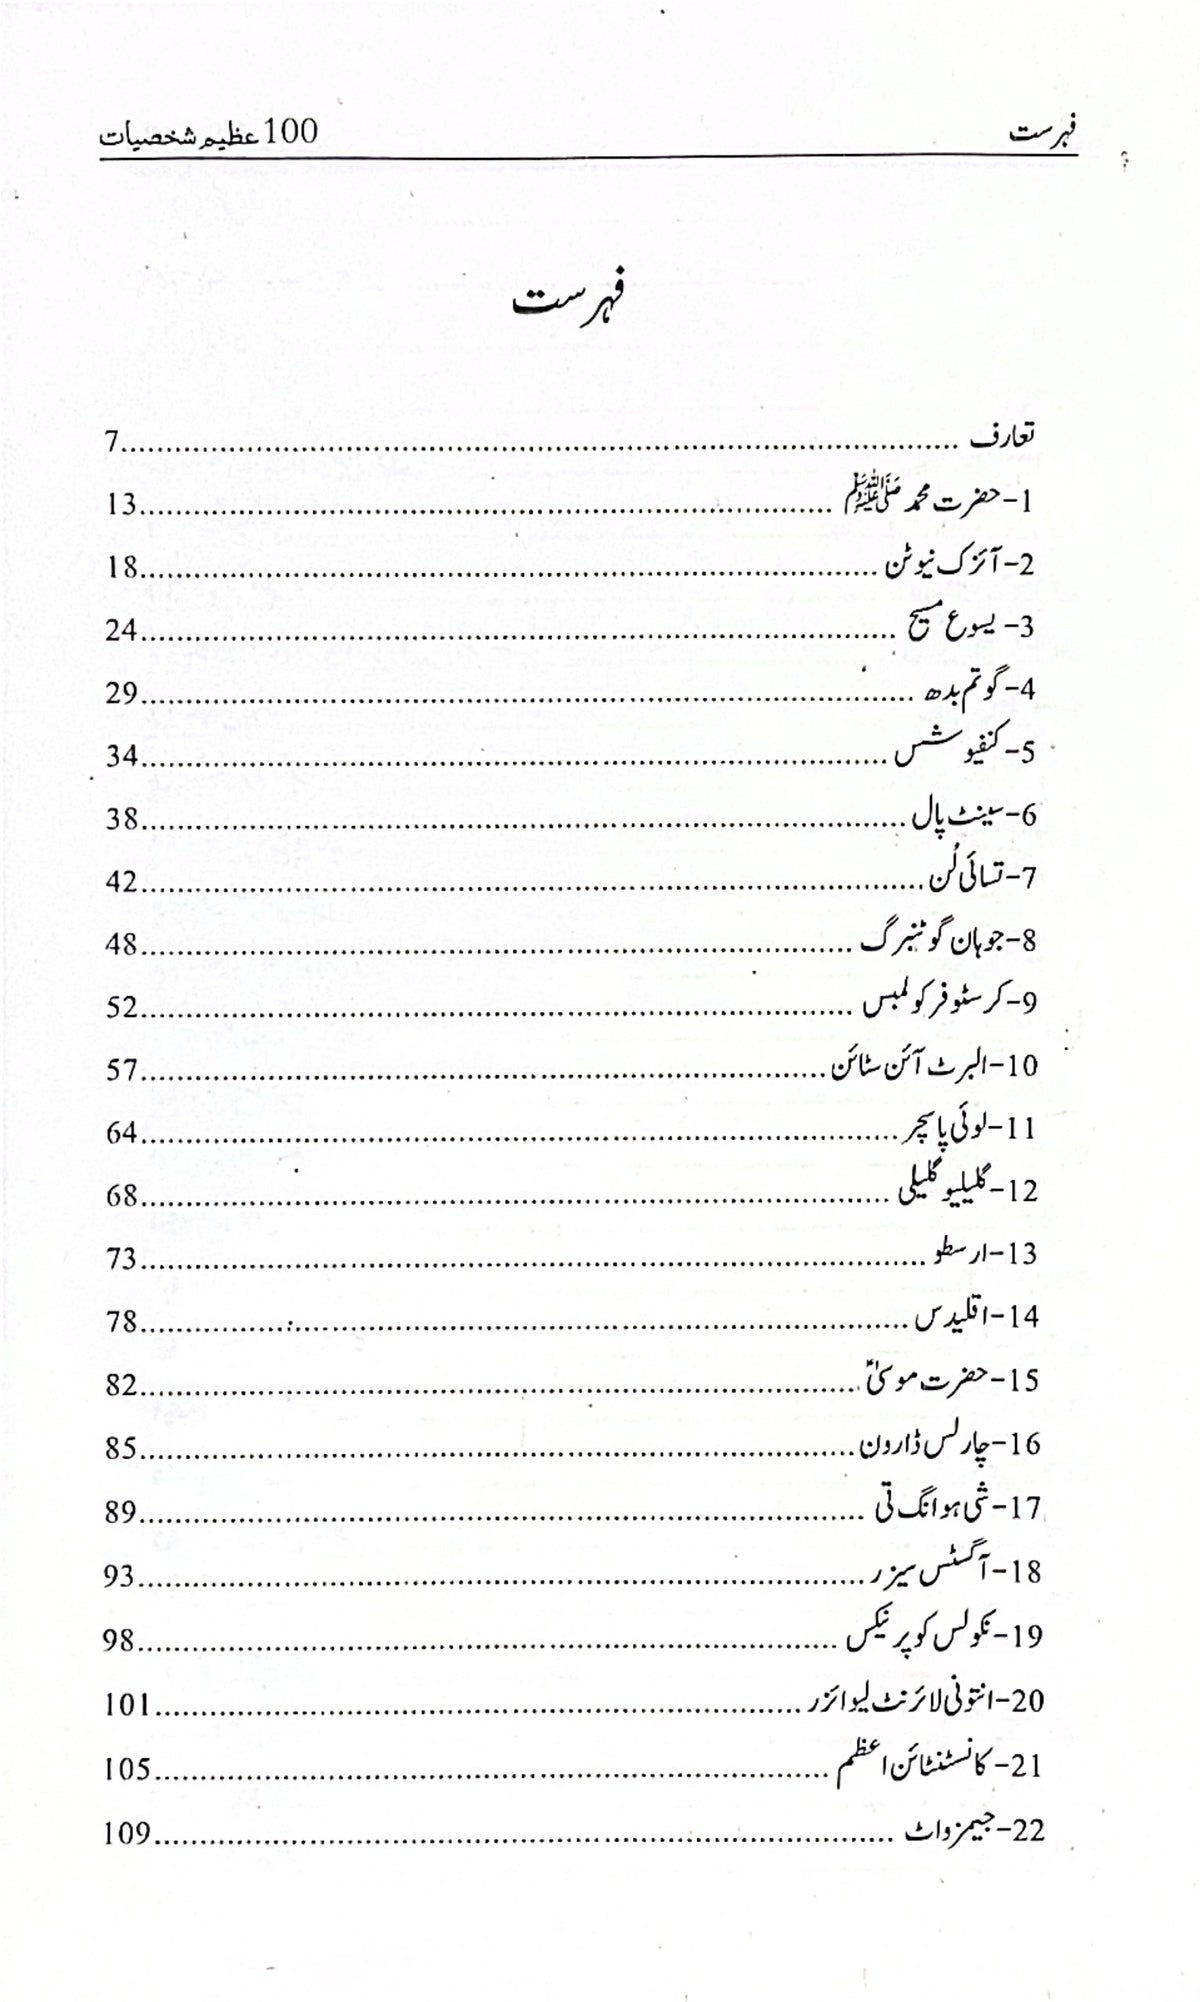 فہرست 100 عظیم شخصیات
فہرست
تعارف ........................ 7
1- حضرت محمد ﷺ ........................ 13
2- آئزک نیوٹن ........................ 18
3- یسوع مسیح ........................ 24
4- گوتم بدھ ........................ 29
5- کنفیوشس ........................ 34
6- سینٹ پال ........................ 38
7- تسائی لُن ........................ 42
8- جوہان گوٹنبرگ ........................ 48
9- کرسٹوفر کولمبس ........................ 52
10- البرٹ آئن سٹائن ........................ 57
11- لوئی پاسچر ........................ 64
12- گلیلیو گلیلی ........................ 68
13- ارسطو ........................ 73
14- اقلیدس ........................ 78
15- حضرت موسیٰؑ ........................ 82
16- چارلس ڈارون ........................ 85
17- شی ہوانگ تی ........................ 89
18- آگسٹس سیزر ........................ 93
19- نکولس کوپرنیکس ........................ 98
20- انتونی لائرنٹ لیوائزر ........................ 101
21- کانسٹنٹائن اعظم ........................ 105
22- جیمز واٹ ........................ 109